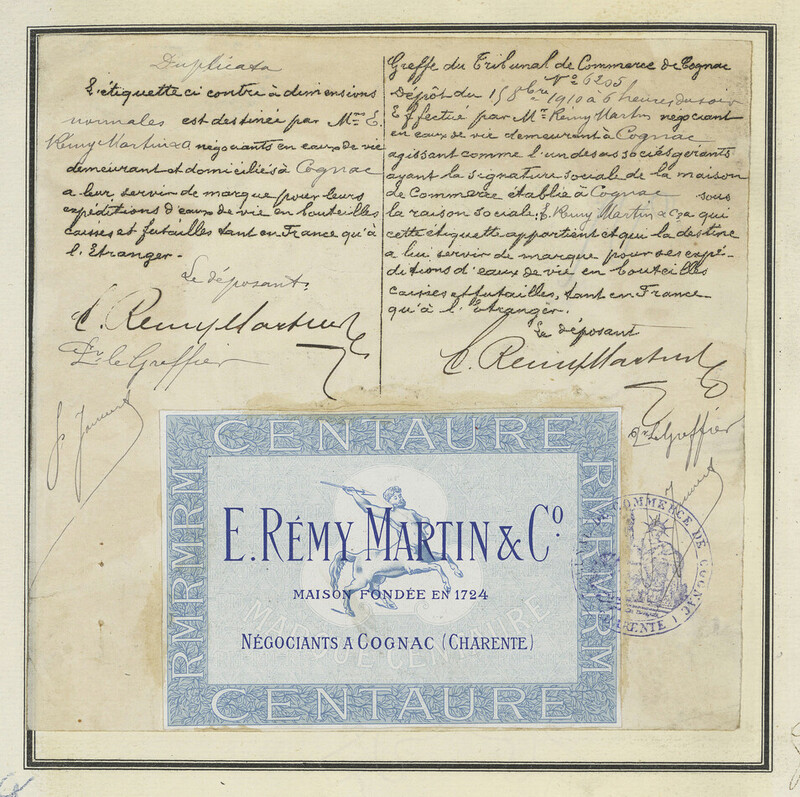 Duplicata
L'étiquette ci contre à dimensions
normales est destinée par Mrs E.
Rémy Martin & Co négociants en eaux de vie
demeurant et domiciliés à Cognac
a leur servir de marque pour leurs
expéditions d'eaux de vie en bouteilles
caisses et futailles tant en France qu'à
l'Etranger.
Le déposant.
E. Remy Martin & Co
Le Greffier
Greffe du Tribunal de Commerce de Cognac
No 6205
Dépôt du 15 8bre 1910 à 6 heures du soir
Effectué par Mr Rémy Martin négociant
en eaux de vie demeurant à Cognac
agissant comme l'un des associés gérants
ayant la signature sociale de la maison
de Commerce établie à Cognac sous
la raison sociale: E. Remy Martin & Cie a qui
cette étiquette appartient et qui la destine
a lui servir de marque pour ses expé-
ditions d'eaux de vie en bouteilles
caisses et futailles, tant en France
qu'à l'Etranger.
Le déposant
E. Remy Martin & Co
Le Greffier
CENTAURE
RMRMRM
RMRMRM
E. RÉMY MARTIN & Co.
MAISON FONDÉE EN 1724
MARQUE CENTAURE
NÉGOCIANTS A COGNAC (CHARENTE)
CENTAURE
DE COMMERCE DE COGNAC
CHARENTE